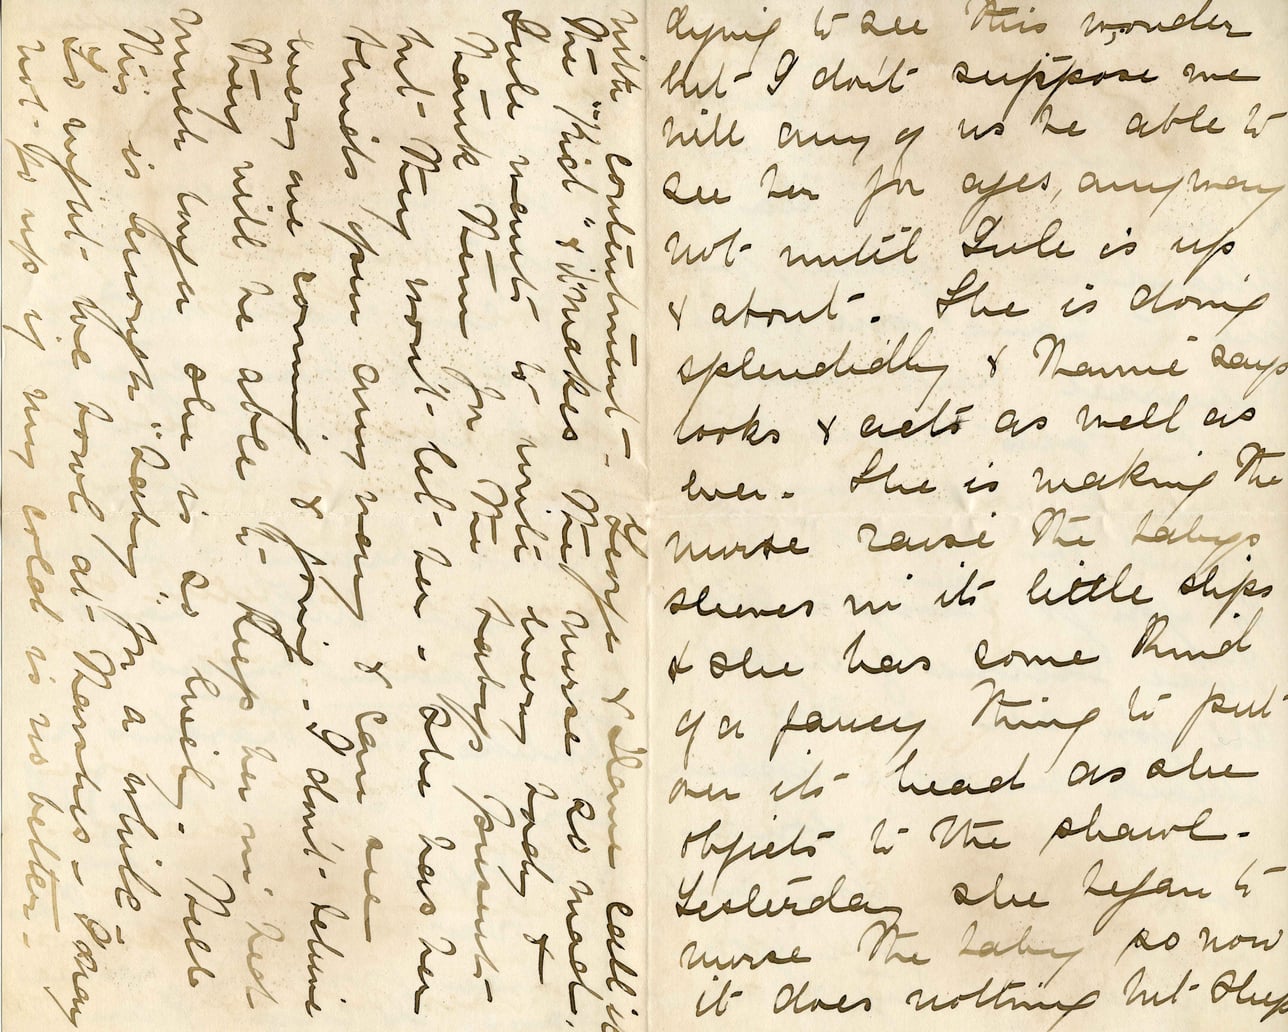 dying to see this wonder
but I don't suppose we
will any of us be able to
see her for ages, anyway
not until Lule is up
& about. She is doing
splendidly & Nannie says
looks & acts as well as
ever. She is making the
nurse raise the babys
sleeves in its little slips
& she has some kind
of a fancy thing to put
over its head as she
objects to the shawl.
Yesterday she began to
nurse the baby so now
it does nothing but sleep
with contentment. George & Mame call it
the "Kid" & it makes the nurse so mad.
Lule wants to write every body &
thank them for the babys presents
but they won't let her. She has her
hands full any way & can see
every one coming & going. I don't believe
they will be able to keep her in bed
much longer she is so well. Well
this is enough "baby" for a while.
To night we bowl at I may
not go up if my cold is no better.